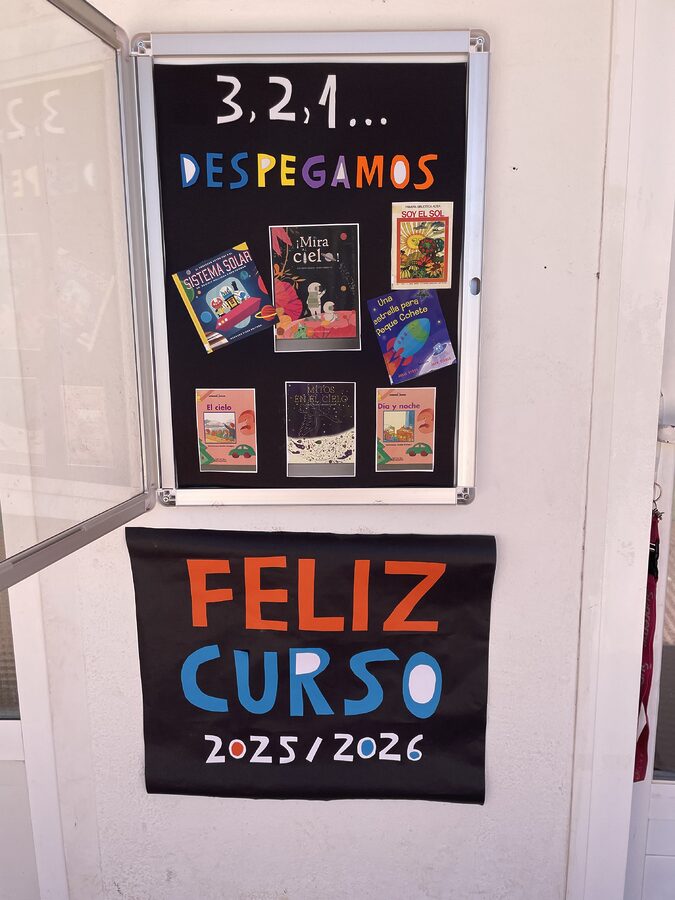 3, 2, 1...
DESPEGAMOS
SOY EL SOL
¡Mira al
cielo!
SISTEMA SOLAR
Una
estrella para
Peque Cohete
El cielo
MITOS
EN EL CIELO
Día y noche
FELIZ
CURSO
2025/2026